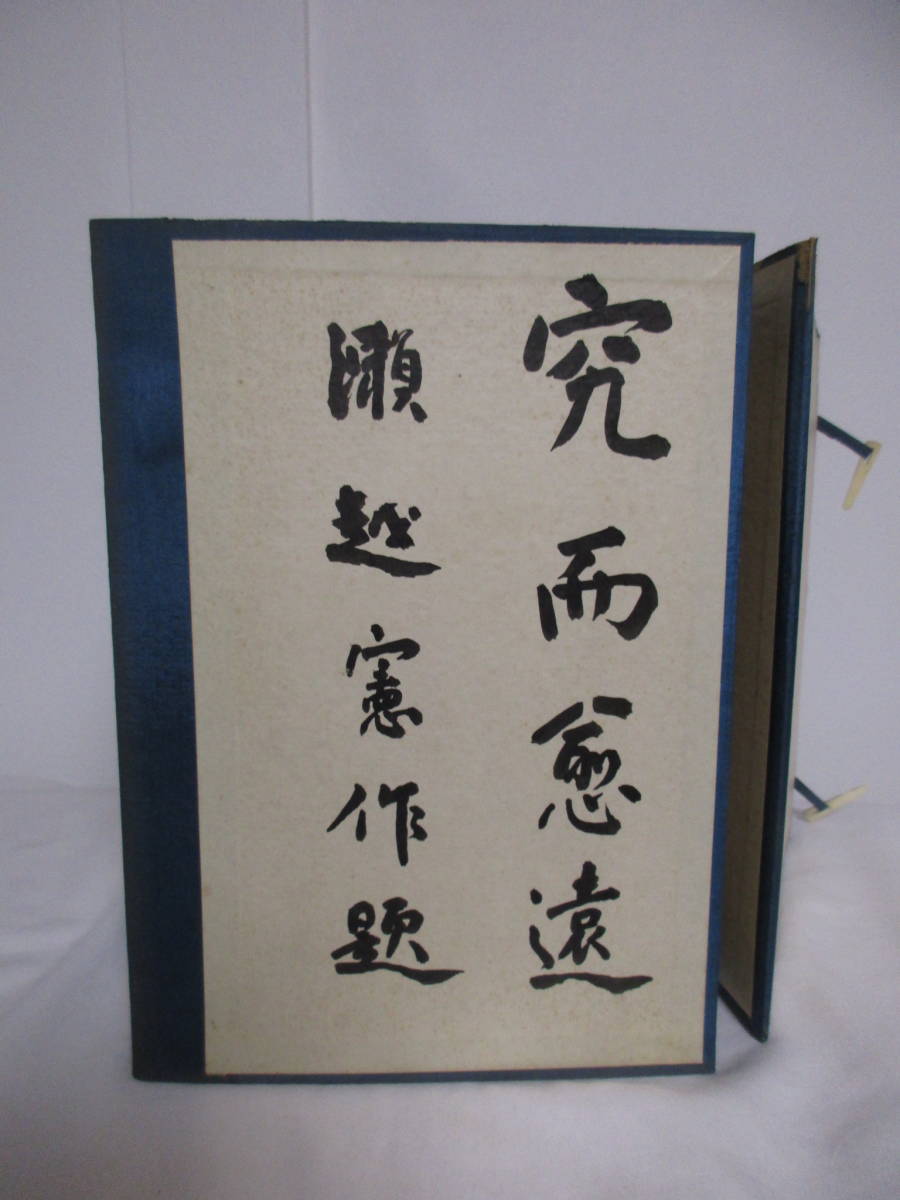 究而愈遠
瀬越憲作題